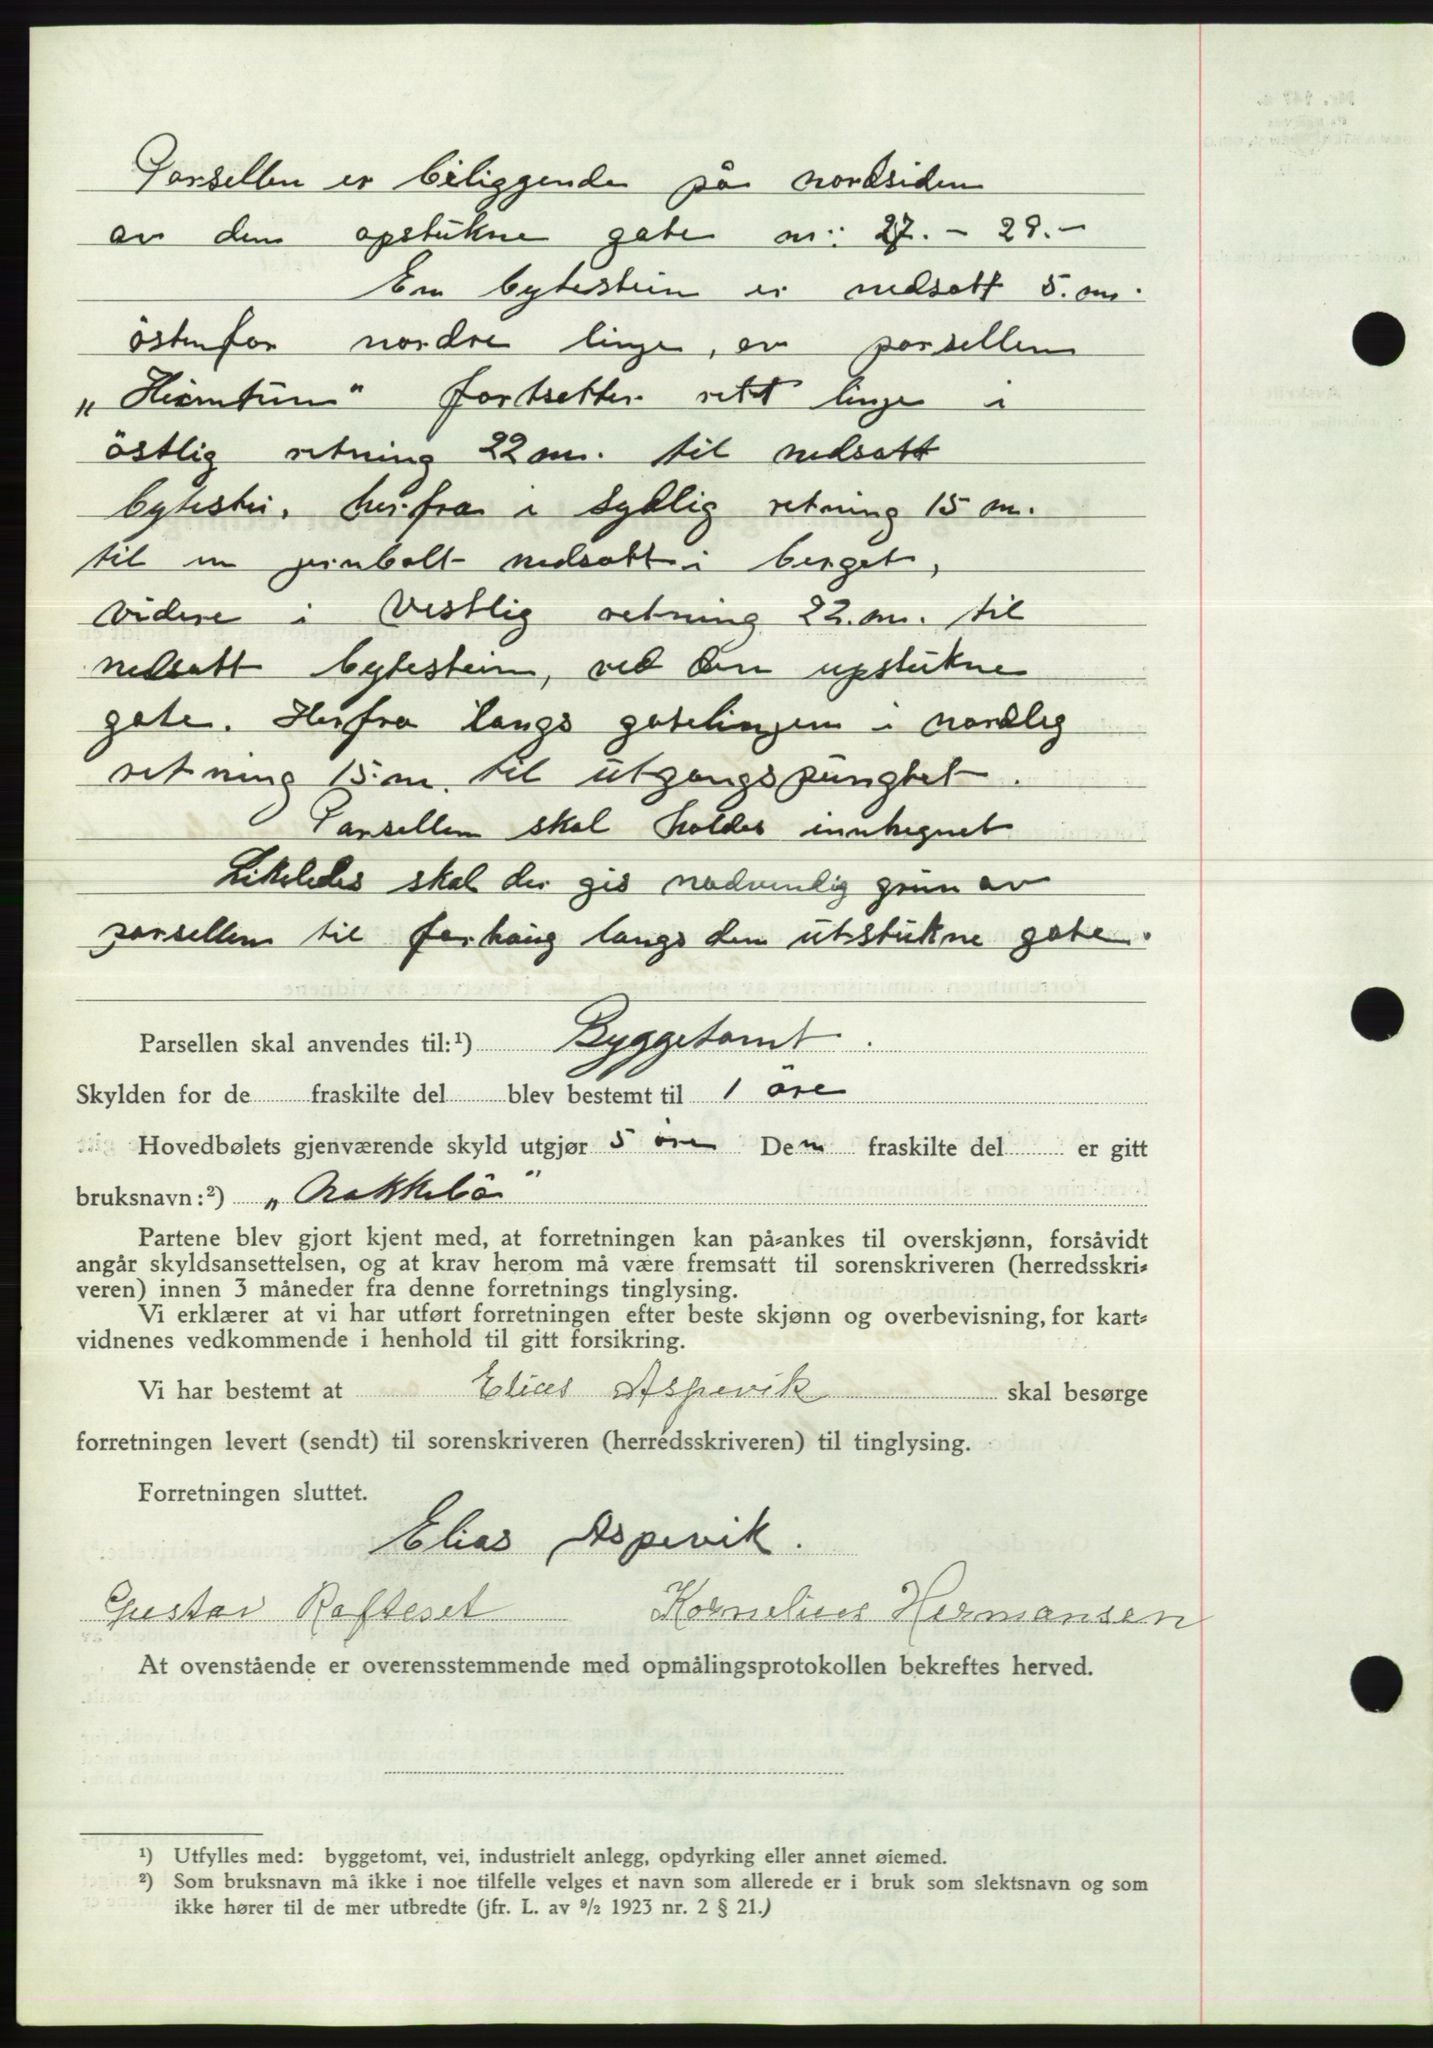 Parsellen er beliggende på nordsiden
av den opstukne gate nr: 27. - 29.-
En bytestein er nedsatt 5.m.
östenfor nordre linge, av parsellen
„Heimtun" fortsetter rett linge i
östlig retning 22 m. til nedsatt
bytestei, herfra i sydlig retning 15 m.
til en jernbolt nedsatt i berget,
videre i vestlig retning 22.m. til
nedsatt bytestein, ved den upstukne
gate. Herfra langs gatelingen i nordlig
retning 15.m. til utgangspunghtet.
Parsellen skal holdes innhegnet
Likeledes skal der gis nødvendig grun av
parsellen til forhaug langs den utstukne gate.
Parsellen skal anvendes til:¹) Byggetomt.
Skylden for de fraskilte del blev bestemt til 1 öre
Hovedbølets gjenværende skyld utgjør 5 öre Den fraskilte del er gitt
bruksnavn:²) „Bakkebö"
Partene blev gjort kjent med, at forretningen kan på-ankes til overskjønn, forsåvidt
angår skyldsansettelsen, og at krav herom må være fremsatt til sorenskriveren (herredsskri-
veren) innen 3 måneder fra denne forretnings tinglysing.
Vi erklærer at vi har utført forretningen efter beste skjønn og overbevisning, for kart-
vidnenes vedkommende i henhold til gitt forsikring.
Vi har bestemt at Elias Aspevik skal besørge
forretningen levert (sendt) til sorenskriveren (herredsskriveren) til tinglysing.
Forretningen sluttet.
Elias Aspevik.
Gustav Rafteset Kornelius Hermansen
At ovenstående er overensstemmende med opmålingsprotokollen bekreftes herved.
¹) Utfylles med: byggetomt, vei, industrielt anlegg, opdyrking eller annet øiemed.
²) Som bruksnavn må ikke i noe tilfelle velges et navn som allerede er i bruk som slektsnavn og som
ikke hører til de mer utbredte (jfr. L. av ⁹/₂ 1923 nr. 2 § 21.)